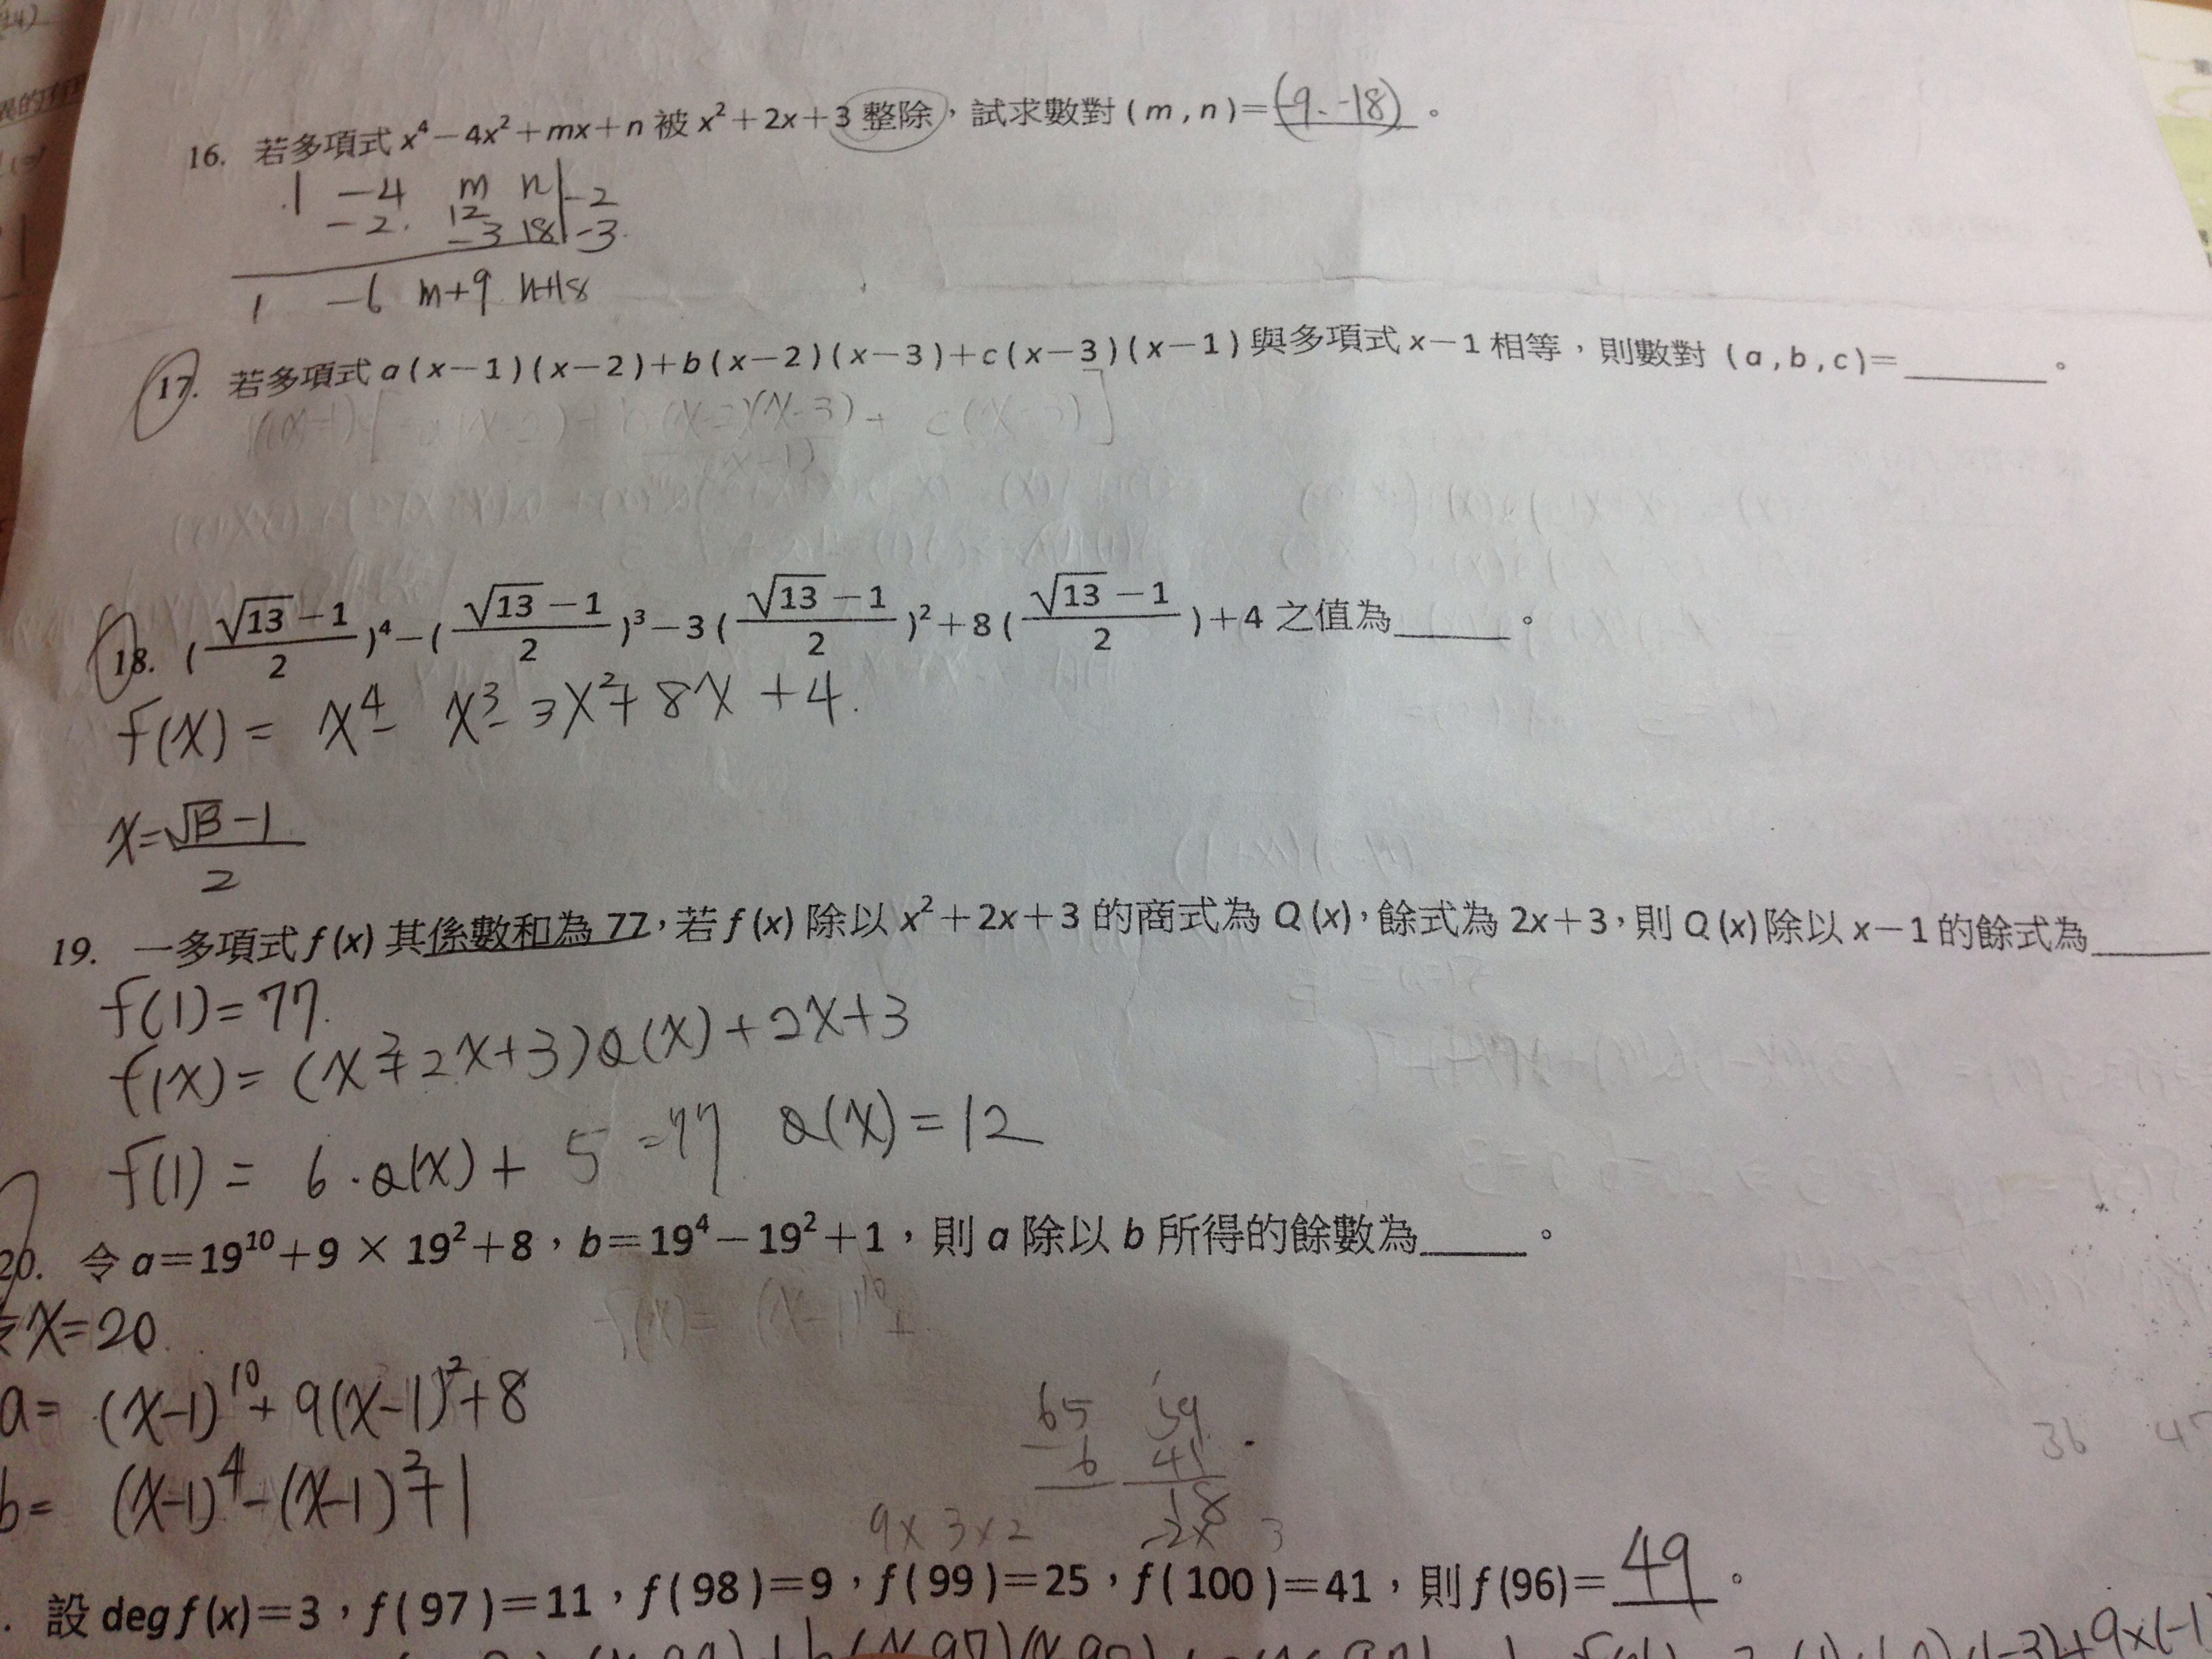 16. 若多項式 x⁴－4x²＋mx＋n 被 x²＋2x＋3 整除，試求數對 ( m , n )＝(-9. -18)。
1 -4 m n -2
-2. 12
-3 18 -3.
1 -6 m+9 n+18
17. 若多項式 a ( x－1 ) ( x－2 )＋b ( x－2 ) ( x－3 )＋c ( x－3 ) ( x－1 ) 與多項式 x－1 相等，則數對 ( a , b , c )＝______。
18. ( (√13－1)/2 )⁴－( (√13－1)/2 )³－3 ( (√13－1)/2 )²＋8 ( (√13－1)/2 )＋4 之值為______。
f(x) = x⁴- x³- 3x²+ 8x +4.
x=(√13-1)/2
19. 一多項式 f (x) 其係數和為 77，若 f (x) 除以 x²＋2x＋3 的商式為 Q (x)，餘式為 2x＋3，則 Q (x) 除以 x－1 的餘式為______
f(1)=77.
f(x)= (x²+2x+3)Q(x)+2x+3
f(1) = 6·Q(x)+ 5 =77 Q(x)=12
20. 令 a＝19¹⁰＋9 × 19²＋8，b＝19⁴－19²＋1，則 a 除以 b 所得的餘數為______。
令x=20.
a= (x-1)¹⁰+ 9(x-1)²+8
b= (x-1)⁴-(x-1)²+1
65 59
6 41
18
9x3x2 -2x 3
36
. 設 deg f (x)＝3，f ( 97 )＝11，f ( 98 )＝9，f ( 99 )＝25，f ( 100 )＝41，則 f (96)＝49。